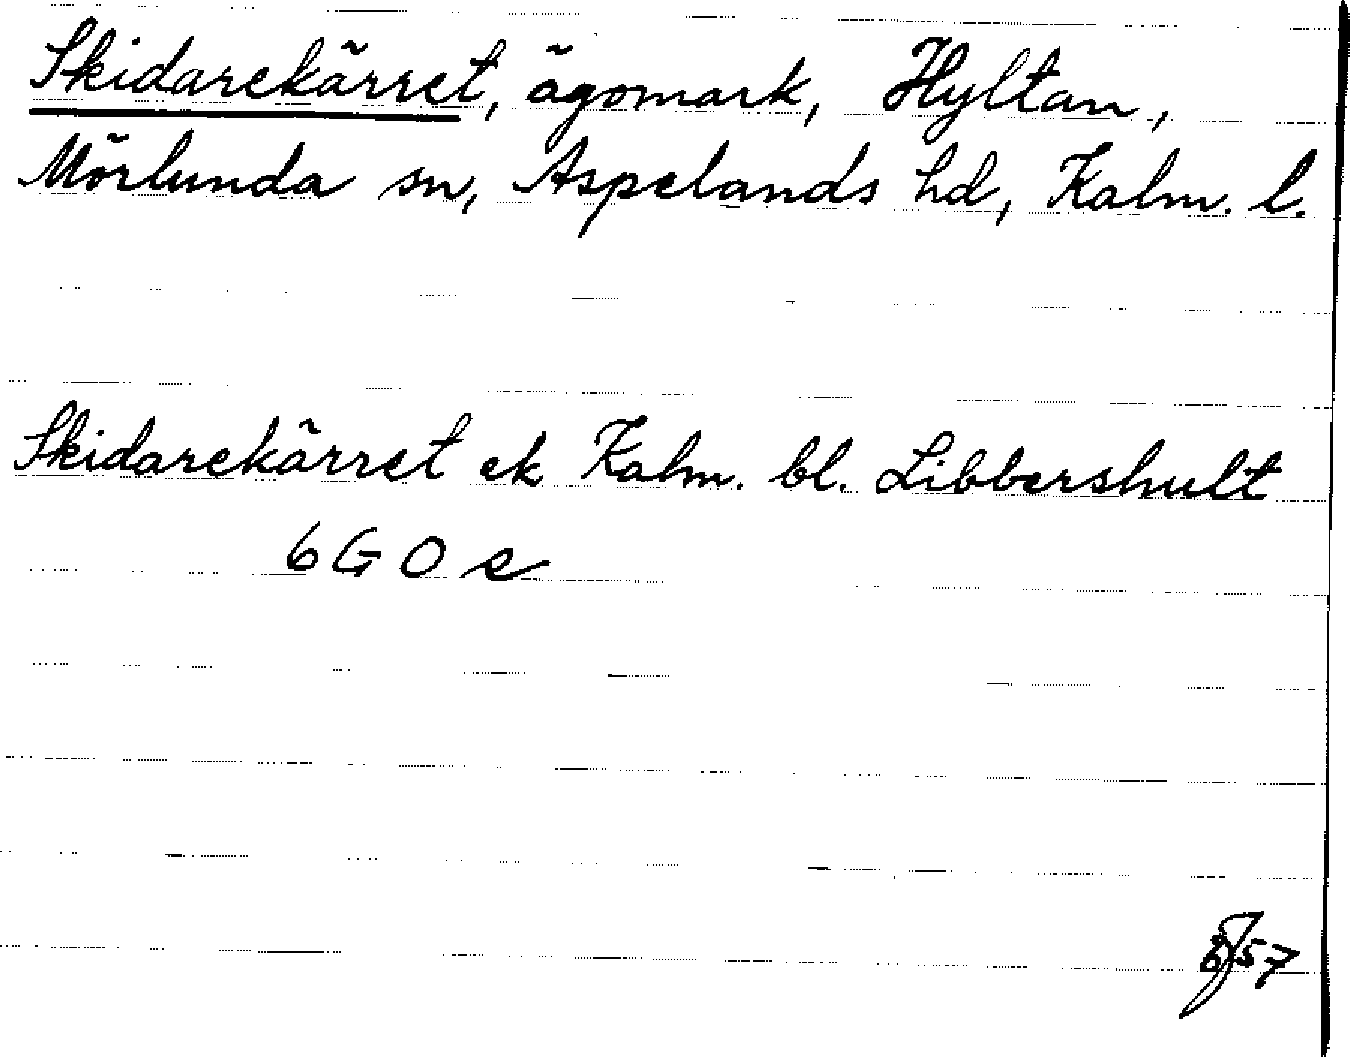 Skidarekärret, ägomark, Hyltan,
Mörlunda sn, Aspelands hd, Kalm. l.
Skidarekärret ek Kalm. bl. Libbershult
6 G O e
57